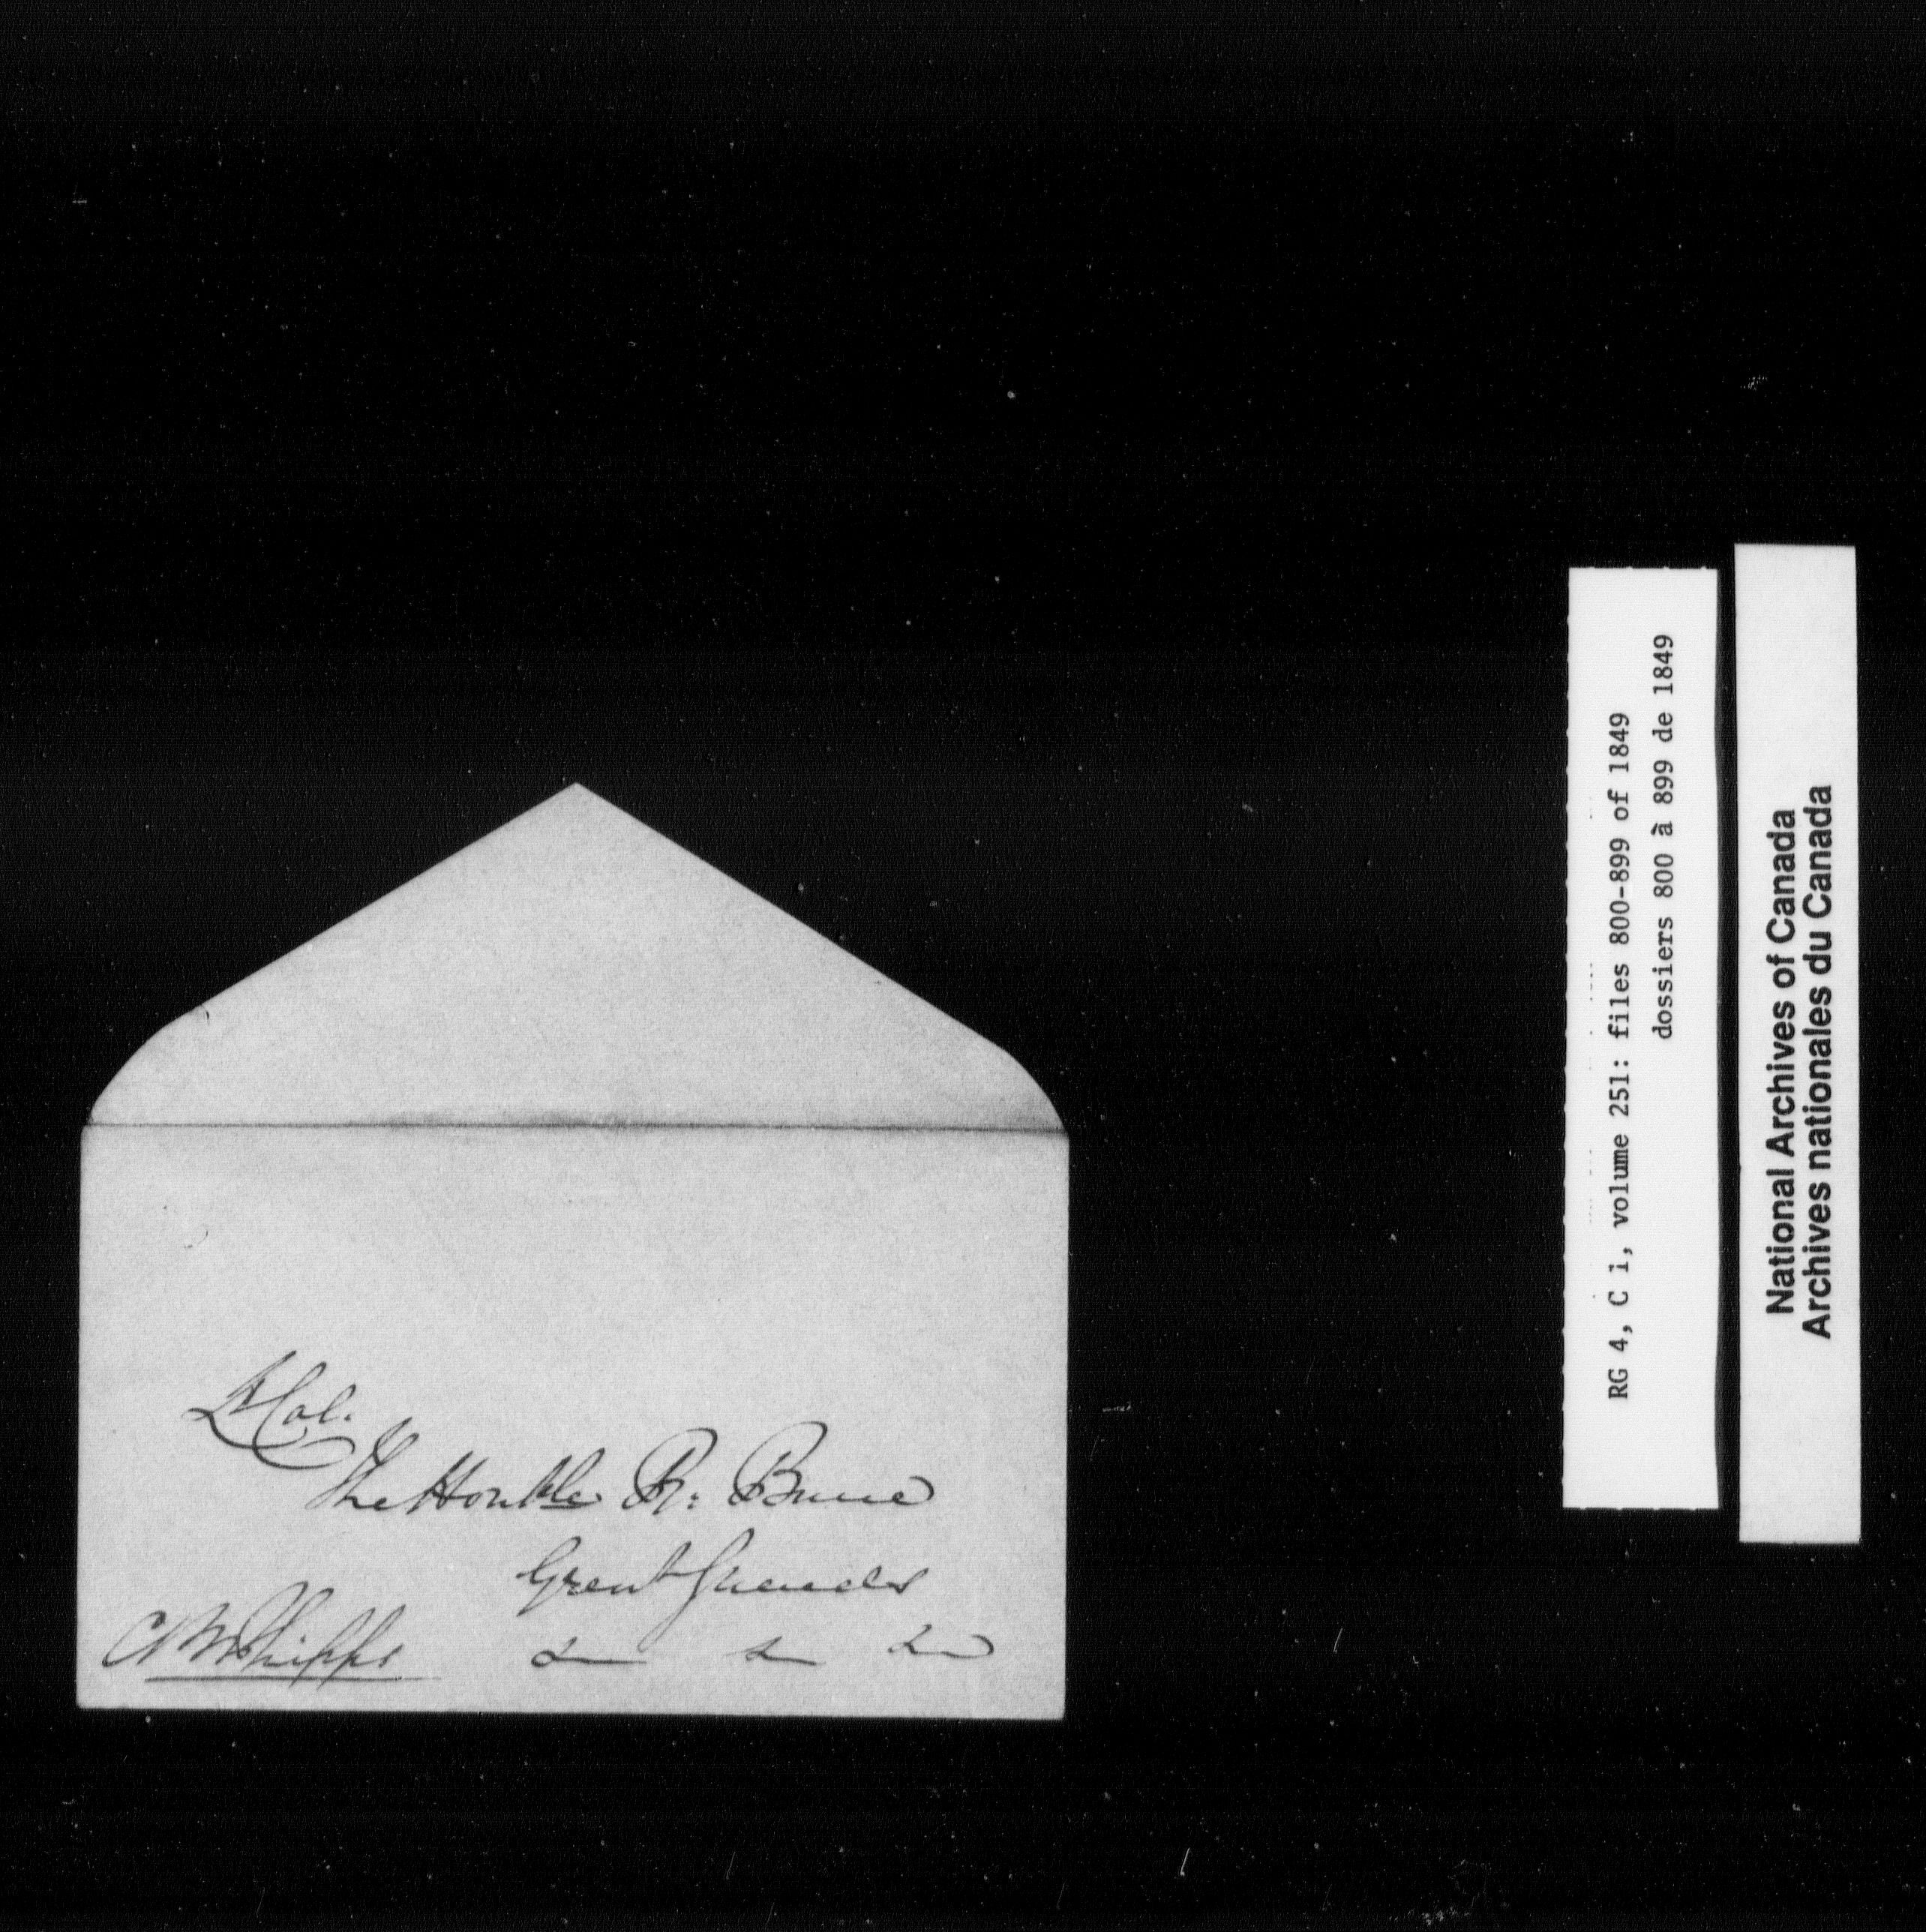 Lt Col.
The Honble R. Bruce
Grent Guards
C B Phipps
RG 4, C i, volume 251: files 800-899 of 1849
dossiers 800 à 899 de 1849
National Archives of Canada
Archives nationales du Canada